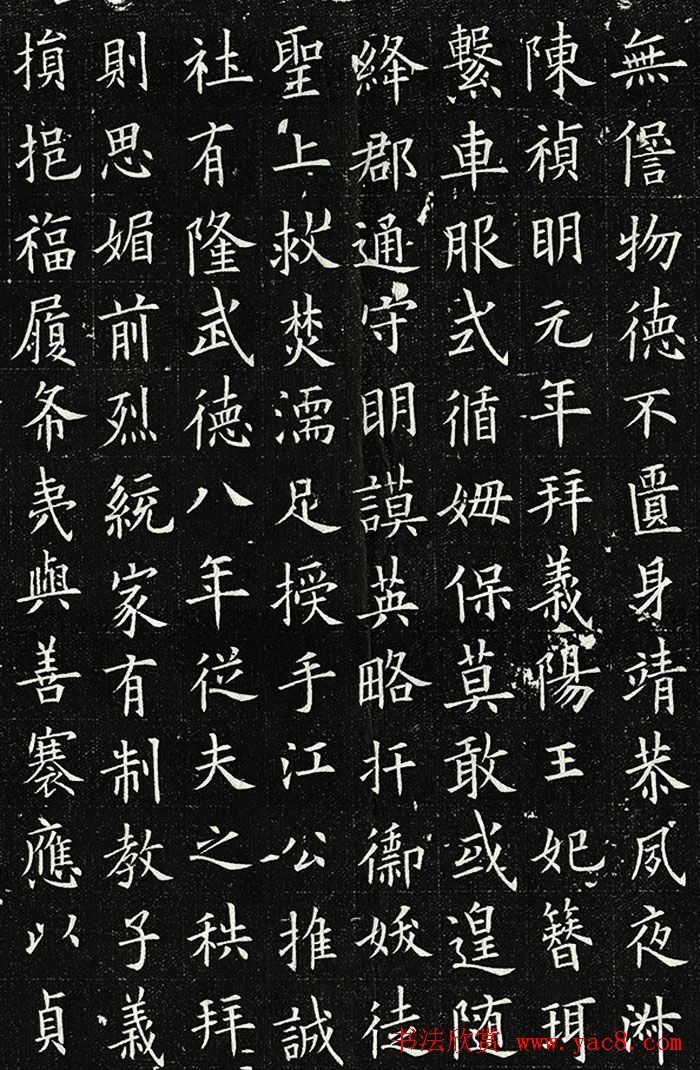 無物德不匱身靖恭夙夜
陳禎明元年拜義陽王妃簪珥
繫車服式循姆保莫敢或遑随
絳郡通守明謨英略扞禦妖徒
聖上救焚濡足授手江公推誠
社有隆武德八年従夫之秩拜
則思媚前烈統家有制教子義
損挹福履希夷與善褰應以貞
书法欣赏 www.yac8.com